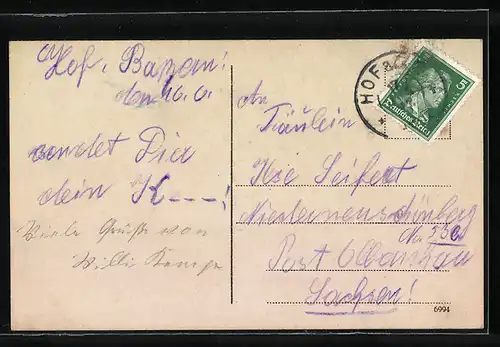 Hof, Bayern!
den 16. 6.
sendet Dir
dein K---!
Viele Grüße von
Willi Kempe
An
Fräulein
Ilse Seifert
Niederneuschönberg
No. 53e
Post Olbernhau
Sachsen!
HOF
5
Deutsches Reich
6994